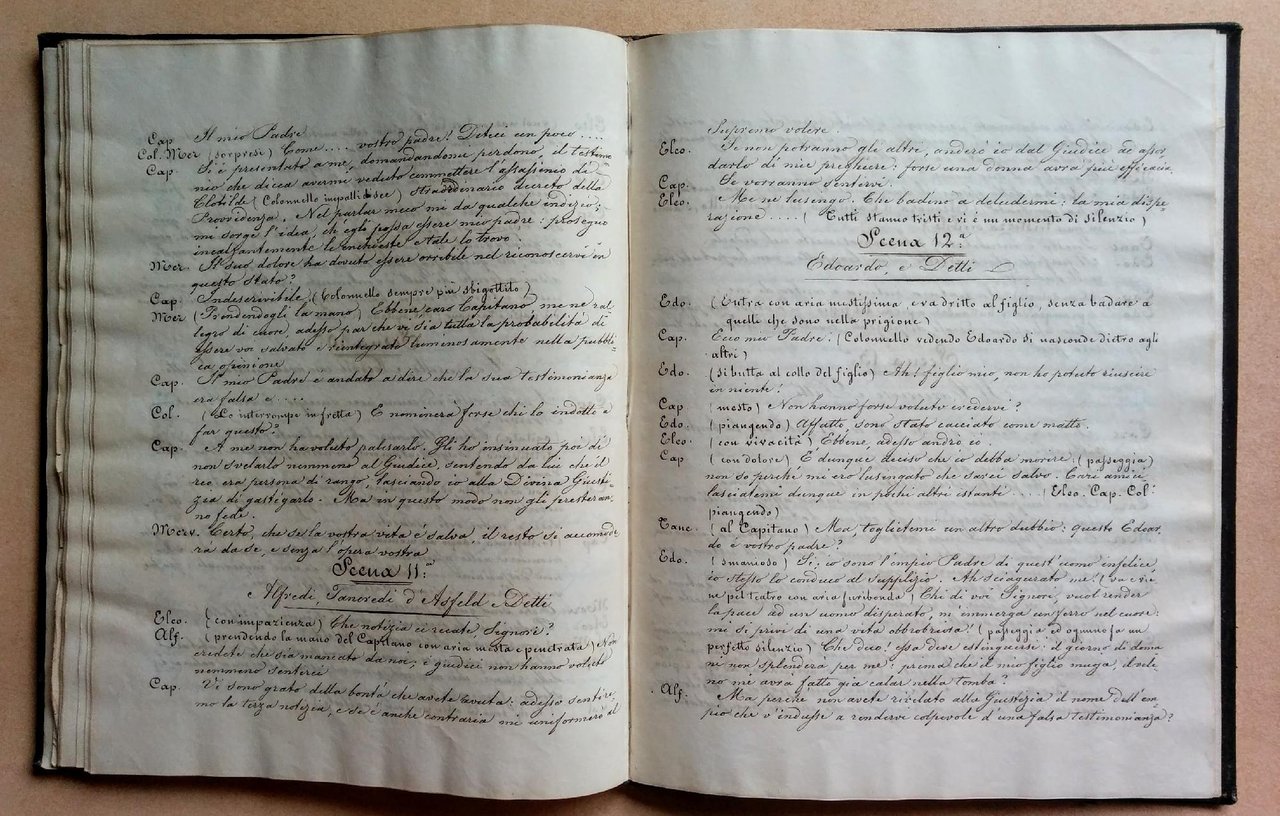 Cap Il mio Padre
Col. Mer (sorpresi) Come.... vostro padre! Diteci un poco....
Cap Si è presentato a me, domandandomi perdono il testimo
nio che dicea avermi veduto commettere l'assassenio di
Clotilde (Colonnello impallidisce) straordinario decreto della
Provvidenza. Nel parlar meco mi da qualche indizio;
mi sorge l'idea, ch'egli possa essere mio padre: proseguo
incessantemente le inchieste e tale lo trovo.
Mer. Il suo dolore ha dovuto essere orribile nel riconoscervi in
questo stato?
Cap. Indescrivibile (Colonnello sempre più sbigottito)
Mer (Prendendogli la mano) Ebbene caro Capitano, me ne ral
legro di cuore, adesso par che vi sia tutta la probabilità di
essere voi salvato e reintegrato luminosamente nella pubbli
ca opinione
Cap. Il mio Padre è andato a dire che la sua testimonianza
era falsa e....
Col. (Lo interrompe in fretta) E nominerà forse chi lo indotti a
far questo?
Cap. A me non ha voluto palisarlo. Gli ho insinuato poi di
non svelarlo nemmeno al Giudice, sentendo da lui che il
reo era persona di rango, lasciando io alla Divina Giusti
zia di gastigarlo. Ma in questo modo non gli presteran
no fede.
Merv. Certo, che se la vostra vita è salva, il resto si accomode
rà da se, e senza l'opera vostra
Scena 11.a
Alfredi, Tancredi d'Asfeld e Detti
Eleo. (con impazienza) Che notizia ci recate Signore?
Alf. (prendendo la mano del Capitano con aria mesta e penetrata) Non
credete che sia mancato da noi; i giudici non hanno voluto
nemmeno sentirci
Cap. Vi sono grato della bontà che avete avuta: adesso sentire
mo la terza notizia, e se è anche contraria mi uniformerò al
Supremo volere.
Eleo. Se non potranno gli altri, anderò io dal Giudice ad assor
darlo di mie preghiere: forse una donna avrà più efficacia
Cap. Se vorranno sentirvi.
Eleo. Me ne lusengo. Che badino a deludermi: la mia dispe
razione.... (Tutti stanno tristi e vi è un momento di silenzio)
Scena 12.a
Edoardo, e Detti
Edo. (Entra con aria mestissima e va dritto al figlio, senza badare a
quelli che sono nella prigione)
Cap. Ecco mio Padre: (Colonnello vedendo Edoardo si nasconde dietro agli
altri)
Edo. (si butta al collo del figlio) Ah! figlio mio, non ho potuto riuscire
in niente!
Cap (mesto) Non hanno forse voluto credervi?
Edo. (piangendo) Affatto, sono stato cacciato come matto.
Eleo. (con vivacità) Ebbene, adesso andrò io.
Cap (con dolore) È dunque deciso che io debba morire: (passeggia)
non so perché mi ero lusengato che sarei salvo. Cari amici
lasciatemi dunque in pochi altri istanti....(Eleo. Cap. Col.
piangendo)
Tanc. (al Capitano) Ma, toglietemi un altro dubbio: questo Edoar
do è vostro padre?
Edo. (smanioso) Si, io sono l'empio Padre di quest'uomo infelice,
io stesso lo conduco al supplizio. Ah sciagurato me! (va e vie
ne pel teatro con aria furibonda) Chi di voi Signori, vuol render
la pace ad un uomo disperato, m'immerga un ferro nel cuore:
mi si privi di una vita obbrobriosa! (passeggia ed ognuno fa un
perfetto silenzio) Che dico! essa deve estinguersi: il giorno di doma
ni non splenderà per me: prima che il mio figlio muoja, il vele
no mi avrà fatto già calar nella tomba!
Alf. Ma perché non avete rivelato alla Giustizia il nome dell'em
pio che v'indusse a rendervi colpevole d'una falsa testimonianza?